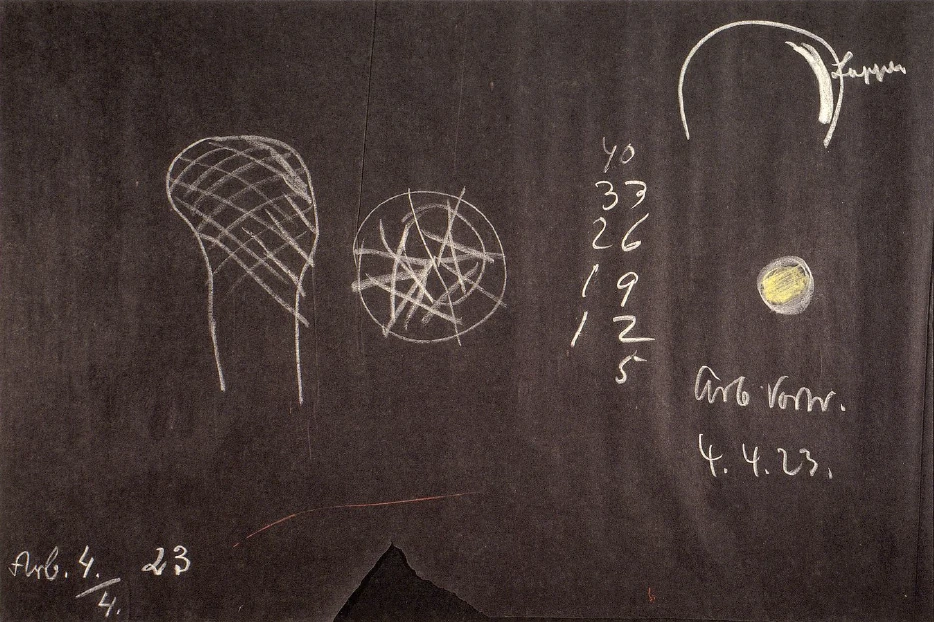 Lappen
40
33
26
19
12
5
Arb Vortr.
4. 4. 23.
Arb. 4. 23
4.